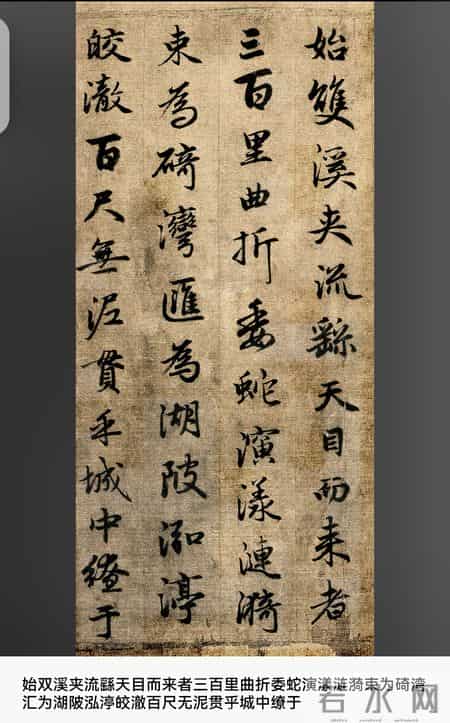 始雙溪夾流繇天目而来者
三百里曲折委蛇演漾漣漪
束為碕灣匯為湖陂泓渟
皎澈百尺無泥貫乎城中繚于
始双溪夹流繇天目而来者三百里曲折委蛇演漾涟漪束为碕湾
汇为湖陂泓渟皎澈百尺无泥贯乎城中缭于
若水网